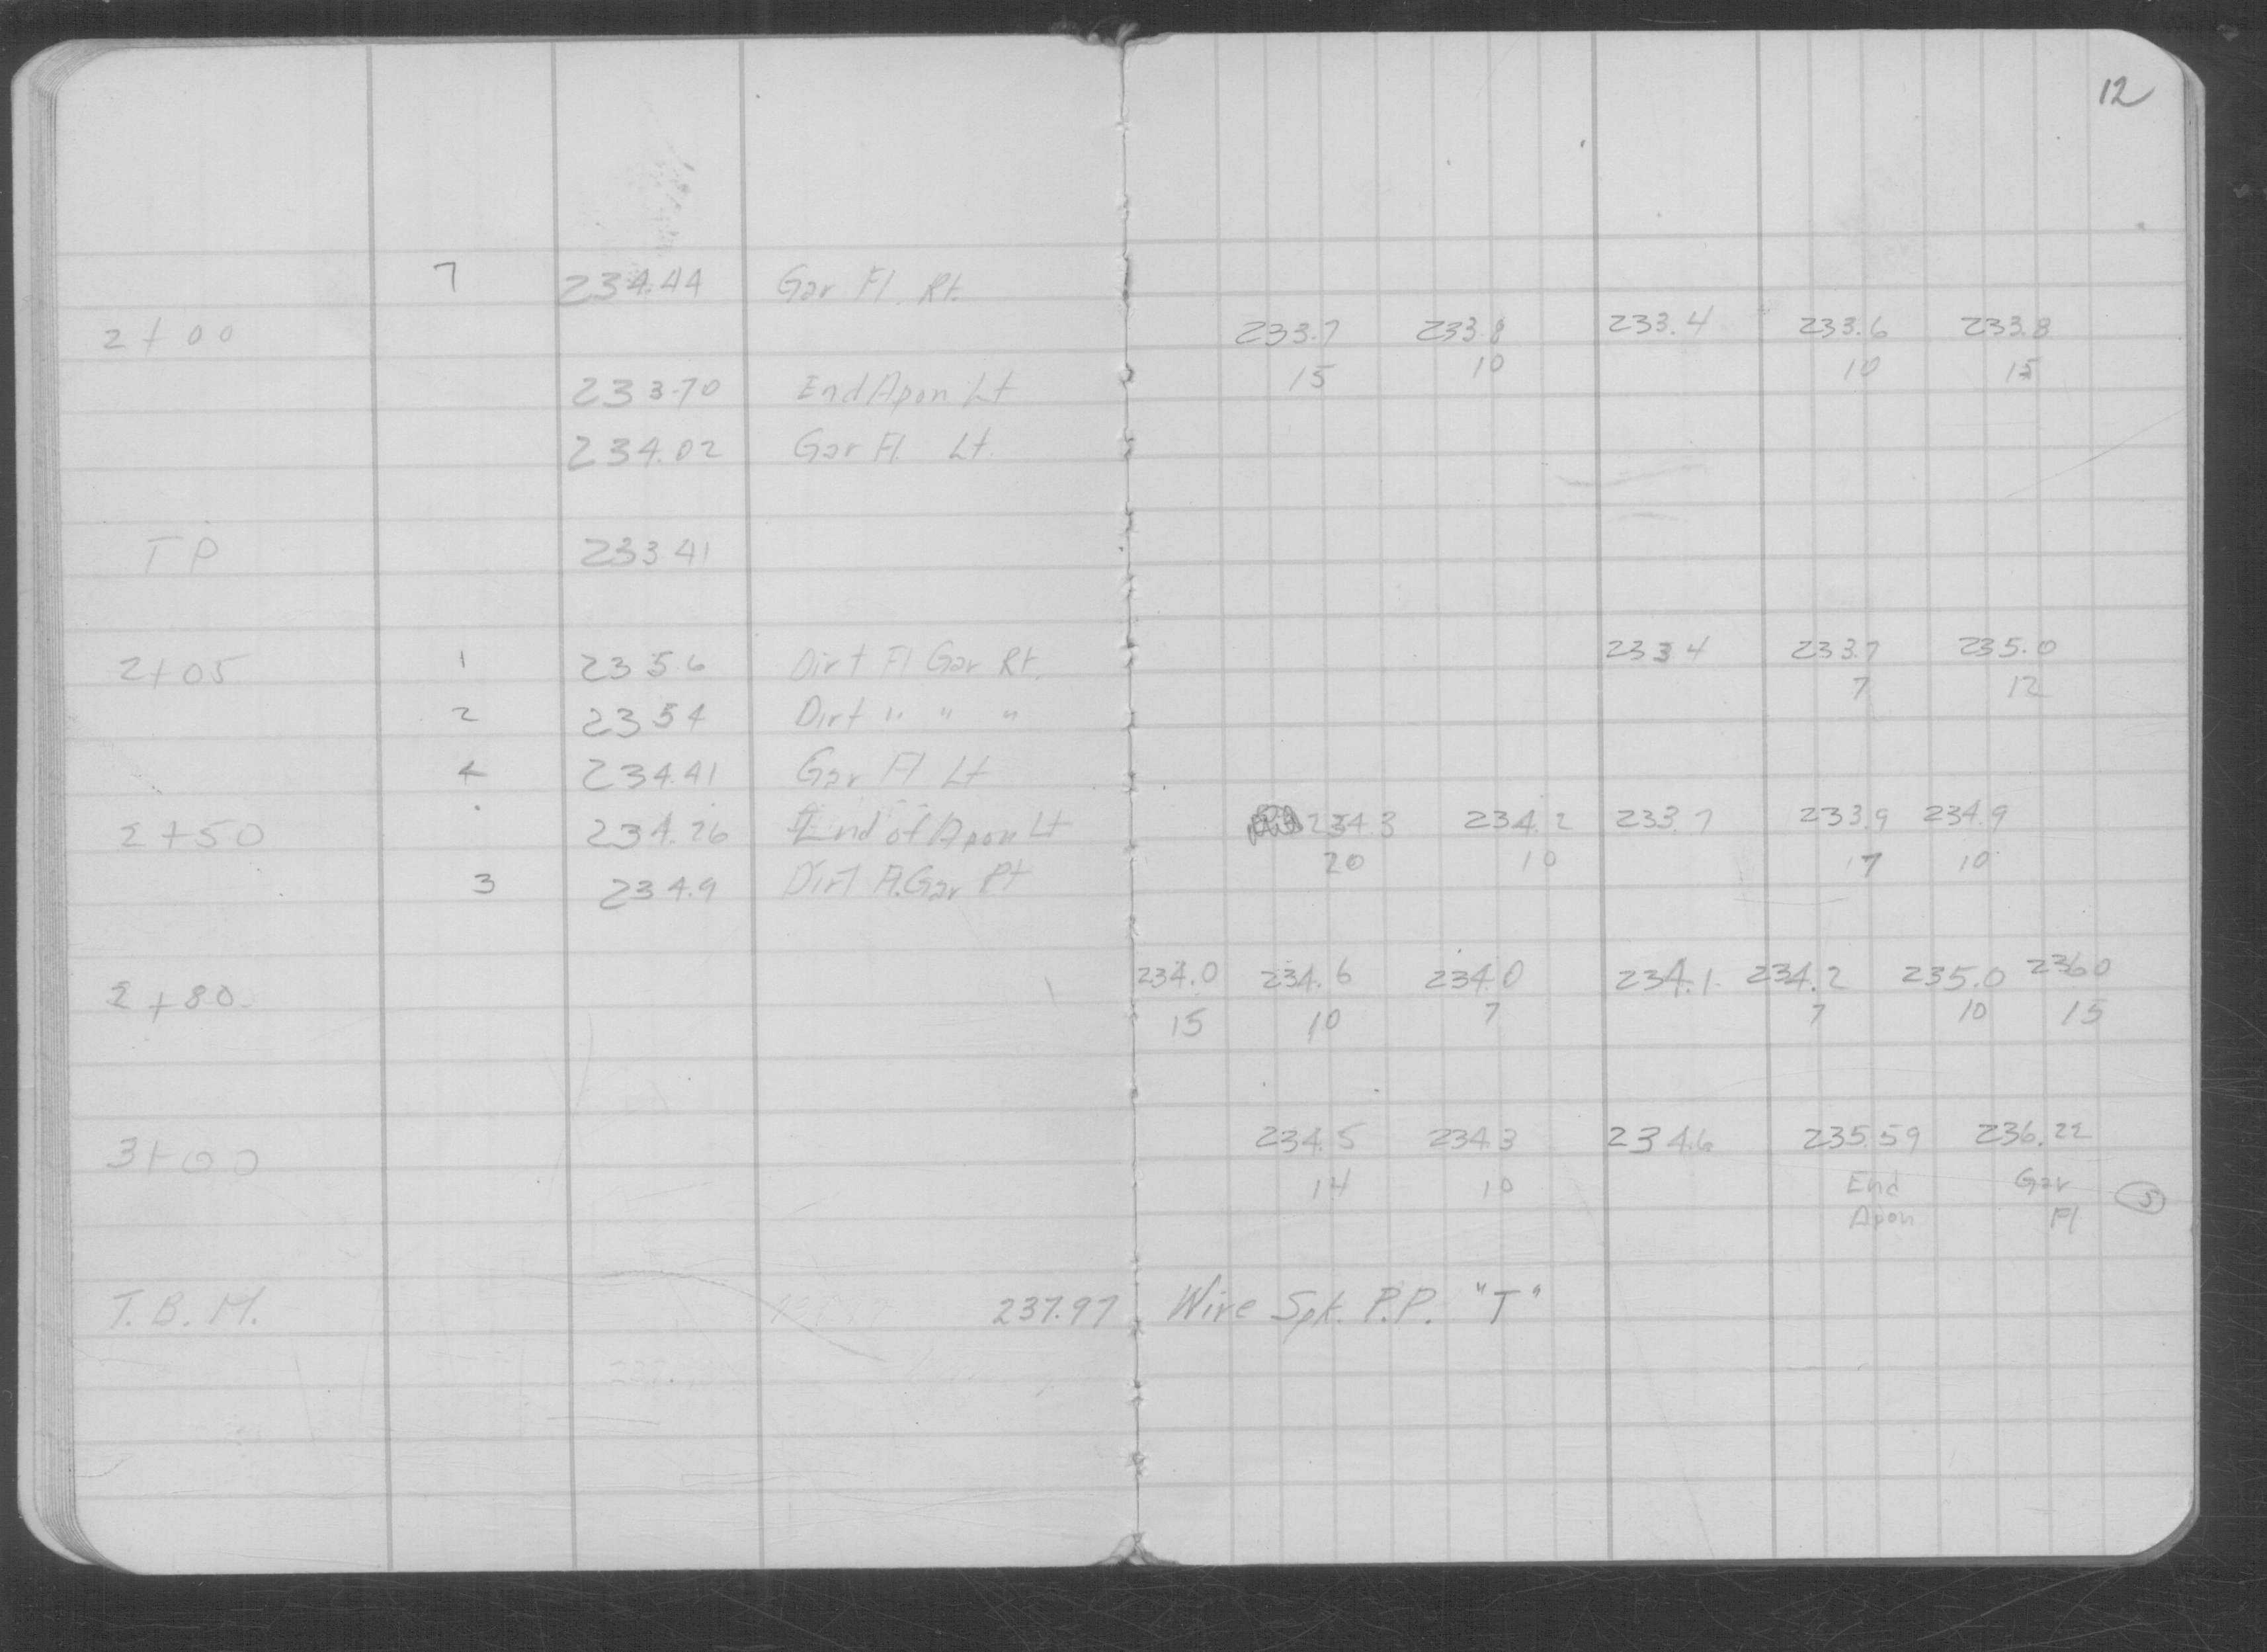 12
7 234.44 Gar Fl. Rt.
2+00 233.7 233.8 233.4 233.6 233.8
15 10 10 15
233.70 End Apon Lt
234.02 Gar Fl. Lt.
TP 233.41
2+05 1 235.6 Dirt Fl Gar Rt. 233.4 233.7 235.0
7 12
2 235.4 Dirt " " "
4 234.41 Gar Fl Lt
2+50 234.26 End of Apon Lt 234.3 234.2 233.7 233.9 234.9
20 10 7 10
3 234.9 Dirt Fl. Gar Rt
2+80 234.0 234.6 234.0 234.1 234.2 235.0 236.0
15 10 7 7 10 15
3+00 234.5 234.3 234.6 235.59 236.22
14 10 End Gar 5
Apon Fl
T.B.M. 237.97 Wire Spk. P.P. "T"